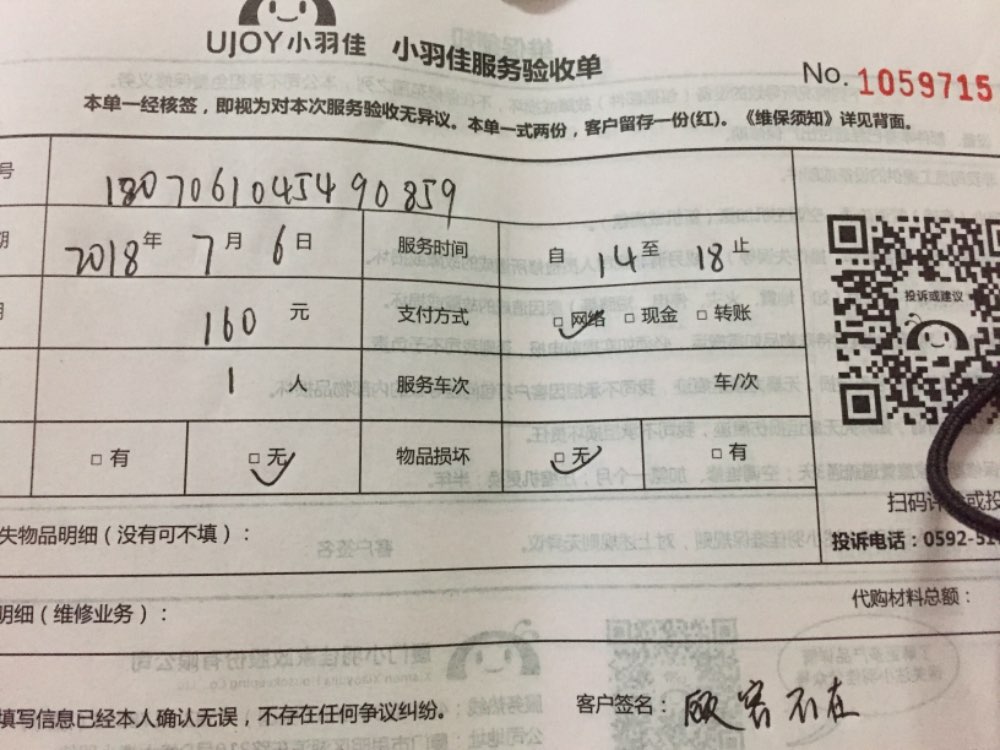 UJOY小羽佳 小羽佳服务验收单
No. 1059715
本单一经核签，即视为对本次服务验收无异议。本单一式两份，客户留存一份(红)。《维保须知》详见背面。
号 180706104549 0859
期 2018年 7月 6日 服务时间 自 14 至 18 止
160 元 支付方式 □ 网络 □ 现金 □ 转账
投诉或建议
1 人 服务车次 车/次
□ 有 □ 无 物品损坏 □ 无 □ 有
失物品明细（没有可不填）：
投诉电话：0592-51
明细（维修业务）：
代购材料总额：
填写信息已经本人确认无误，不存在任何争议纠纷。
客户签名： 顾客不在